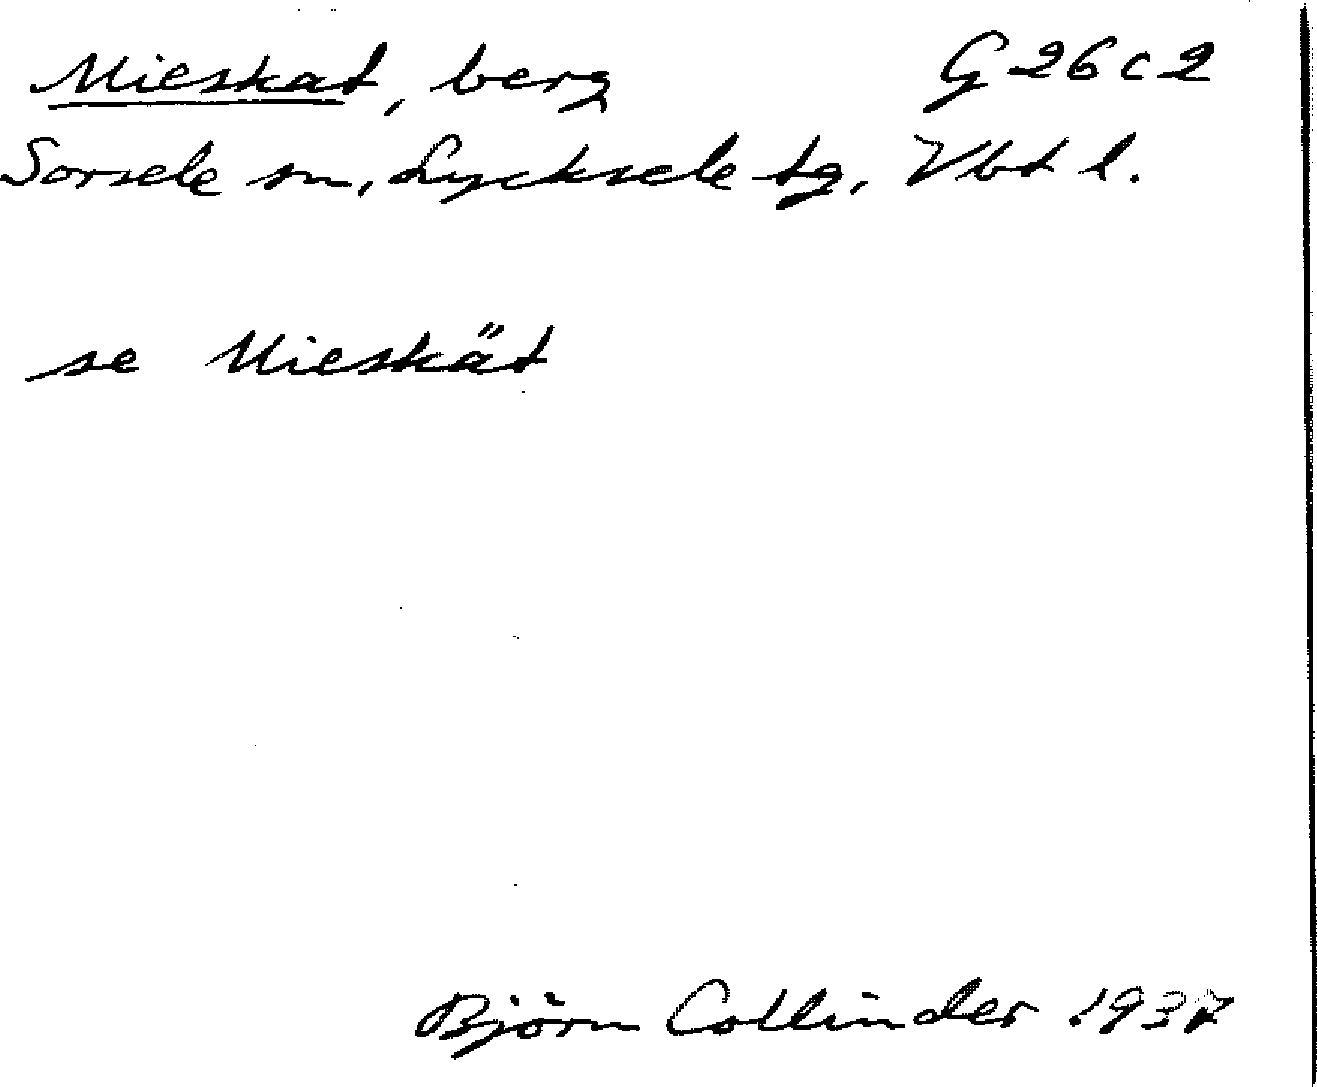 Mieskat, berg G 26 c 2
Sorsele sn, Lycksele tg, Vbt l.
se Mieskät
Björn Collinder 1937